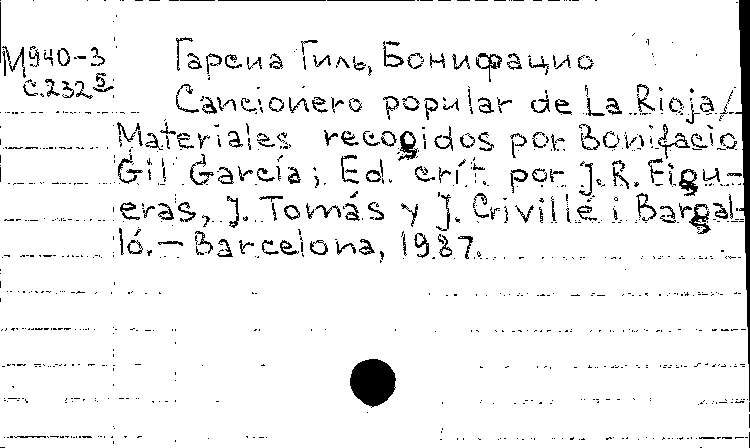 М940-3
с.232⁵
Гарсиа Гиль, Бонифацио
Cancionero popular de La Rioja/
Materiales recogidos por Bonifacio
Gil García; Ed. crít. por J.R. Figu-
eras, J. Tomás y J. Crivillé i Bargal-
ló.— Barcelona, 1987.